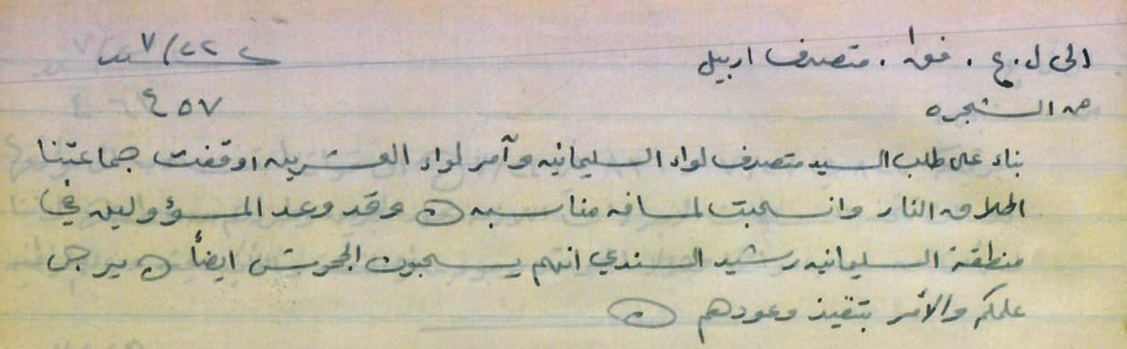 الى ل.ع. فق١. متصرف اربيل ٧/٢٢
من الشجره ٤٥٧
بناء على طلب السيد متصرف لواء السليمانيه وآمر لواء العشرين اوقفت جماعتنا
اطلاق النار وانسحبت لمسافه مناسبه ن وقد وعد المسؤولين في
منطقة السليمانيه رشيد السندي انهم يسحبون الجحوش ايضاً ن يرجى
علمكم والأمر بتنفيذ وعودهم ن